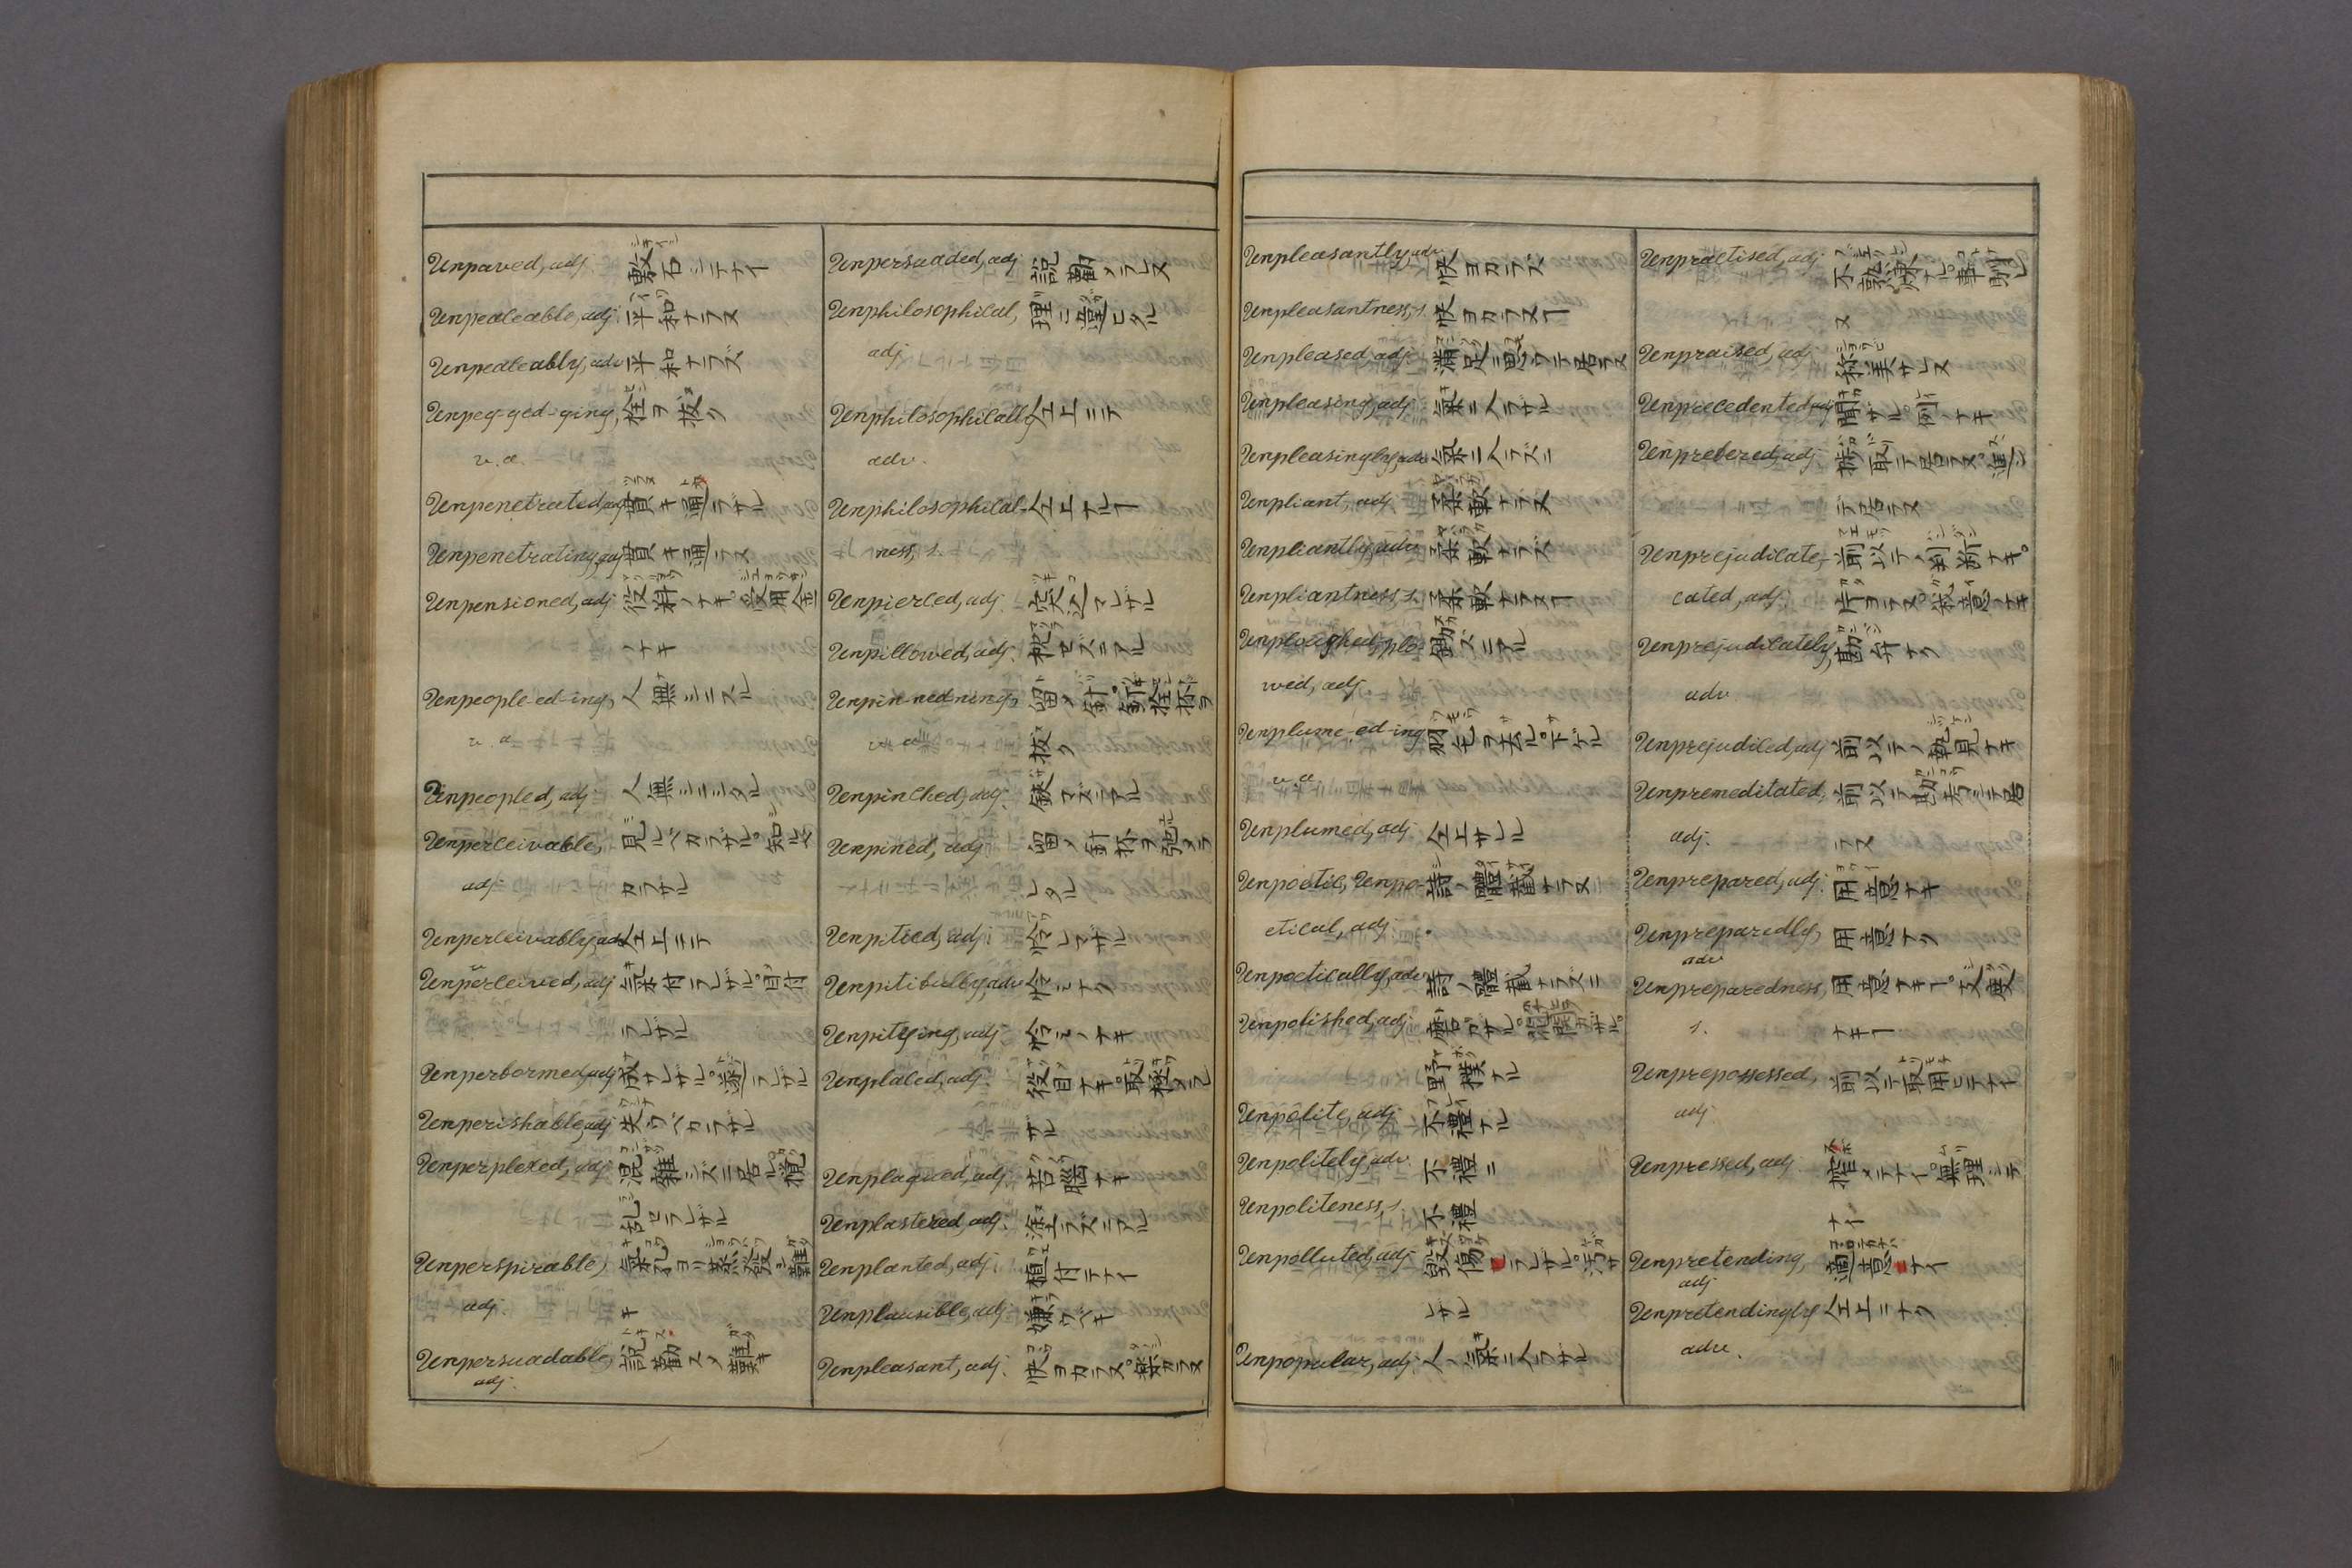 Unpaved, adj. 敷石シテナイ
Unpeaceable, adj. 平和ナラヌ
Unpeaceably, adv 平和ナラズ
Unpeg-ged-ging, 栓ヲ抜ク
v. a.
Unpenetrated, adj 貫キ通ラザル
Unpenetrating, adj 貫キ通ラヌ
Unpensioned, adj 役料ノナキ。役用金
ノナキ
Unpeople-ed-ing, 人無シニスル
v. a
Unpeopled, adj 人無シニシタル
Unperceivable, 見ルベカラザル。知ルベ
adj. カラザル
Unperceivably, adv 仝上ニテ
Unperceived, adj 気付ラレザル。目付
ラレザル
Unperformed, adj 成サレザル。遂ラレザル
Unperishable, adj 失ウベカラザル
Unperplexed, adj 混雑シズニ居ル。攪
乱セラレザル
Unperspirable, 気孔ヨリ蒸発シ難
adj. キ
Unpersuadable, 説勧スメ難キ
adj.
Unpersuaded, adj 説勧メラレヌ
Unphilosophical, 理ニ違ヒタル
adj
Unphilosophically 仝上ニテ
adv.
Unphilosophical- 仝上ナルヿ
ness, s.
Unpierced, adj. 突込マレザル
Unpillowed, adj. 枕セズニアル
Unpin-ned-ning, 留メ針。釘栓抔ヲ
v. a 抜ク
Unpinched, adj. 鋏マズニアル
Unpined, adj 留メ針抔ヲ弛メラ
レタル
Unpitied, adj. 怜レマザル
Unpitifully, adv 怜ミナク
Unpitying, adj. 怜ミノナキ
Unplaced, adj. 役目ナキ。取極メラレ
ザル
Unplagued, adj. 苦悩ナキ
Unplastered, adj. 塗ラズニアル
Unplanted, adj. 植付テナイ
Unplausible, adj. 嫌ウベキ
Unpleasant, adj. 快ヨカラヌ。楽カラヌ
Unpleasantly, adv 快ヨカラズ
Unpleasantness, s. 快ヨカラヌヿ
Unpleased, adj. 満足ニ思ウテ居ラヌ
Unpleasing, adj 気ニ入ラザル
Unpleasingly, adv 気ニ入ラズニ
Unpliant, adj 柔軟ナラヌ
Unpliantly, adv 柔軟ナラズ
Unpliantness, s. 柔軟ナラヌヿ
Unploughed, plo- 鋤ズニアル
wed, adj.
Unplume-ed-ing 羽毛ヲ去ル。下ゲル
v. a
Unplumed, adj 仝上サレル
Unpoetic, Unpo- 詩ノ體裁ナラヌ
etical, adj.
Unpoetically, adv 詩ノ體裁ナラズニ
Unpolished, adj 磨カザル。
野樸ナル
Unpolite, adj. 不禮ナル
Unpolitely, adv. 不禮ニ
Unpoliteness, s. 不禮
Unpolluted, adj. 毀傷ラレザル。汚サ
レザル
Unpopular, adj. 人ノ気ニ入ラザル
Unpractised, adj 不熟煉ナル。事明レ
ヌ
Unpraised, adj 称美サレヌ
Unprecedented, adj 聞ザル。例ノナキ
Unprefered, adj 撰取テ居ラヌ。進ン
デ居ラヌ
Unprejudicate,- 前以テノ判断ナキ。
cated, adj. 片ヨラヌ。欲意ノナキ
Unprejudicately, 勘弁ナク
adv
Unprejudiced, adj 前以テノ執見ナキ
Unpremeditated, 前以テ勘考シテ居
adj. ラヌ
Unprepared, adj. 用意ナキ
Unpreparedly, 用意ナク
adv
Unpreparedness, 用意ナキヿ。支度
s. ナキヿ
Unprepossessed, 前以テ取用ヒテナイ
adj
Unpressed, adj. 搾メテナイ。無理シテ
ナイ
Unpretending, 適意ナイ
adj
Unpretendingly 仝上ニナク
adv.